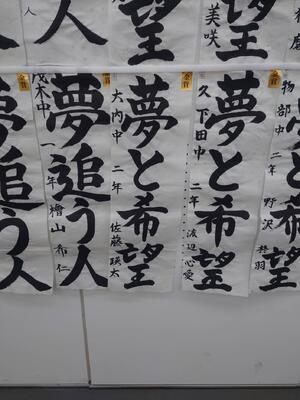 人
望
美咲
望
金賞
夢と希望
物部中 二年 野沢
金賞
夢と希望
久下田中 二年 渡辺心愛
夢と希望
大内中 二年 佐藤瑛太
夢追う人
茂木中 一年 檜山希仁
夢追う人